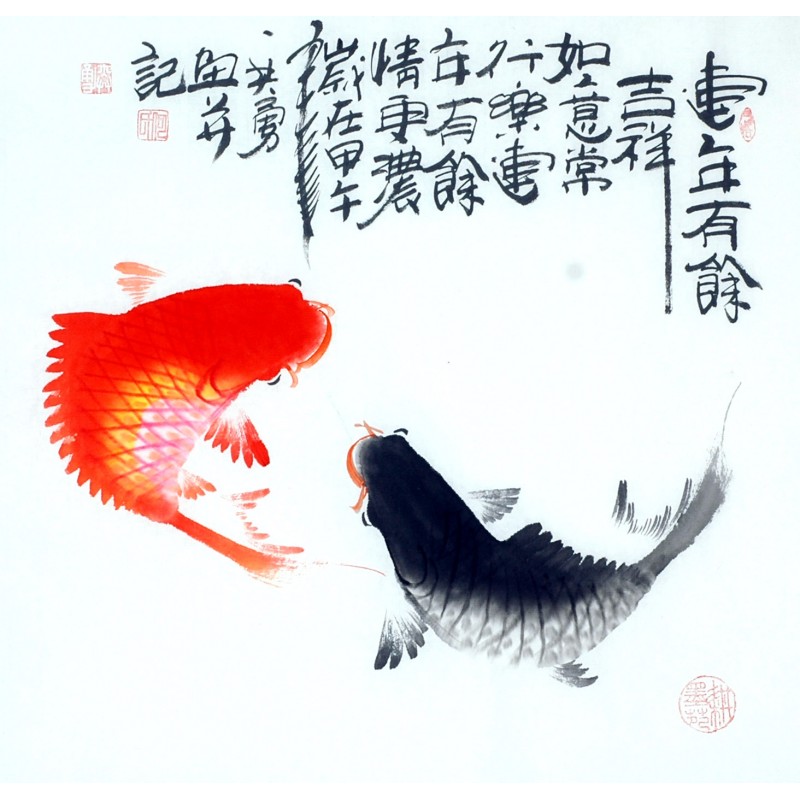 連年有餘
吉祥
如意常
行樂連
年有餘
情更濃
歲在甲午
年
英勇
画并
記